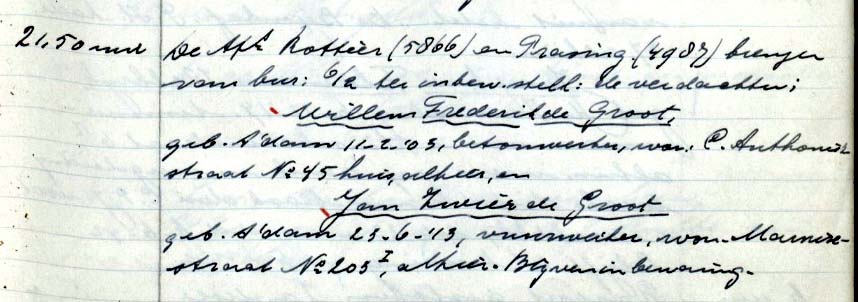 21.50 uur De Agt Rottier (5866) en Prasing (4987) brengen
van bur: 6/2 ter inbew. stell: de verdachten:
Willem Frederik de Groot,
geb. A'dam 11-2-03, betonwerker, won: C. Anthonisz
straat No 45 huis, alhier, en
Jan Zwier de Groot
geb. A'dam 23-6-13, vuurwerker, won. Marnixe-
straat No 203 I, alhier. Blijven in bewaring.